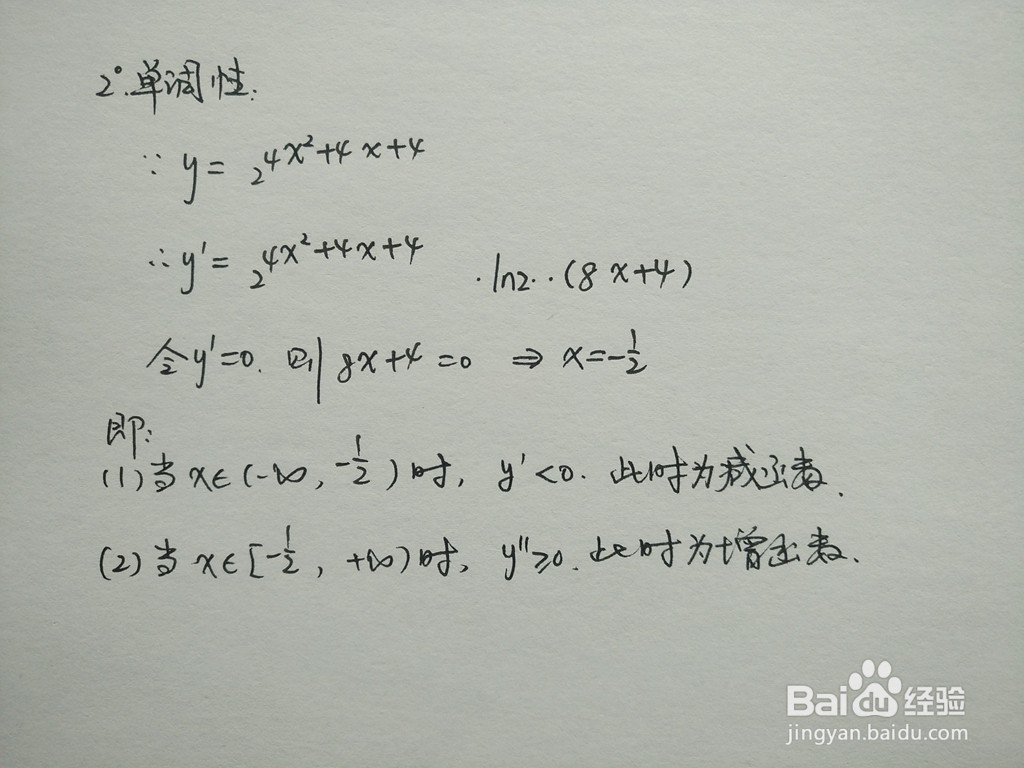 2°.单调性.
∵ y = 2^{4x²+4x+4}
∴ y' = 2^{4x²+4x+4} · ln2 · (8x+4)
令 y'=0. 则 8x+4=0 ⇒ x=-1/2
即:
(1) 当 x∈(-∞, -1/2) 时, y'<0. 此时为减函数.
(2) 当 x∈[-1/2, +∞) 时, y''≥0. 此时为增函数.
Baidu经验
jingyan.baidu.com